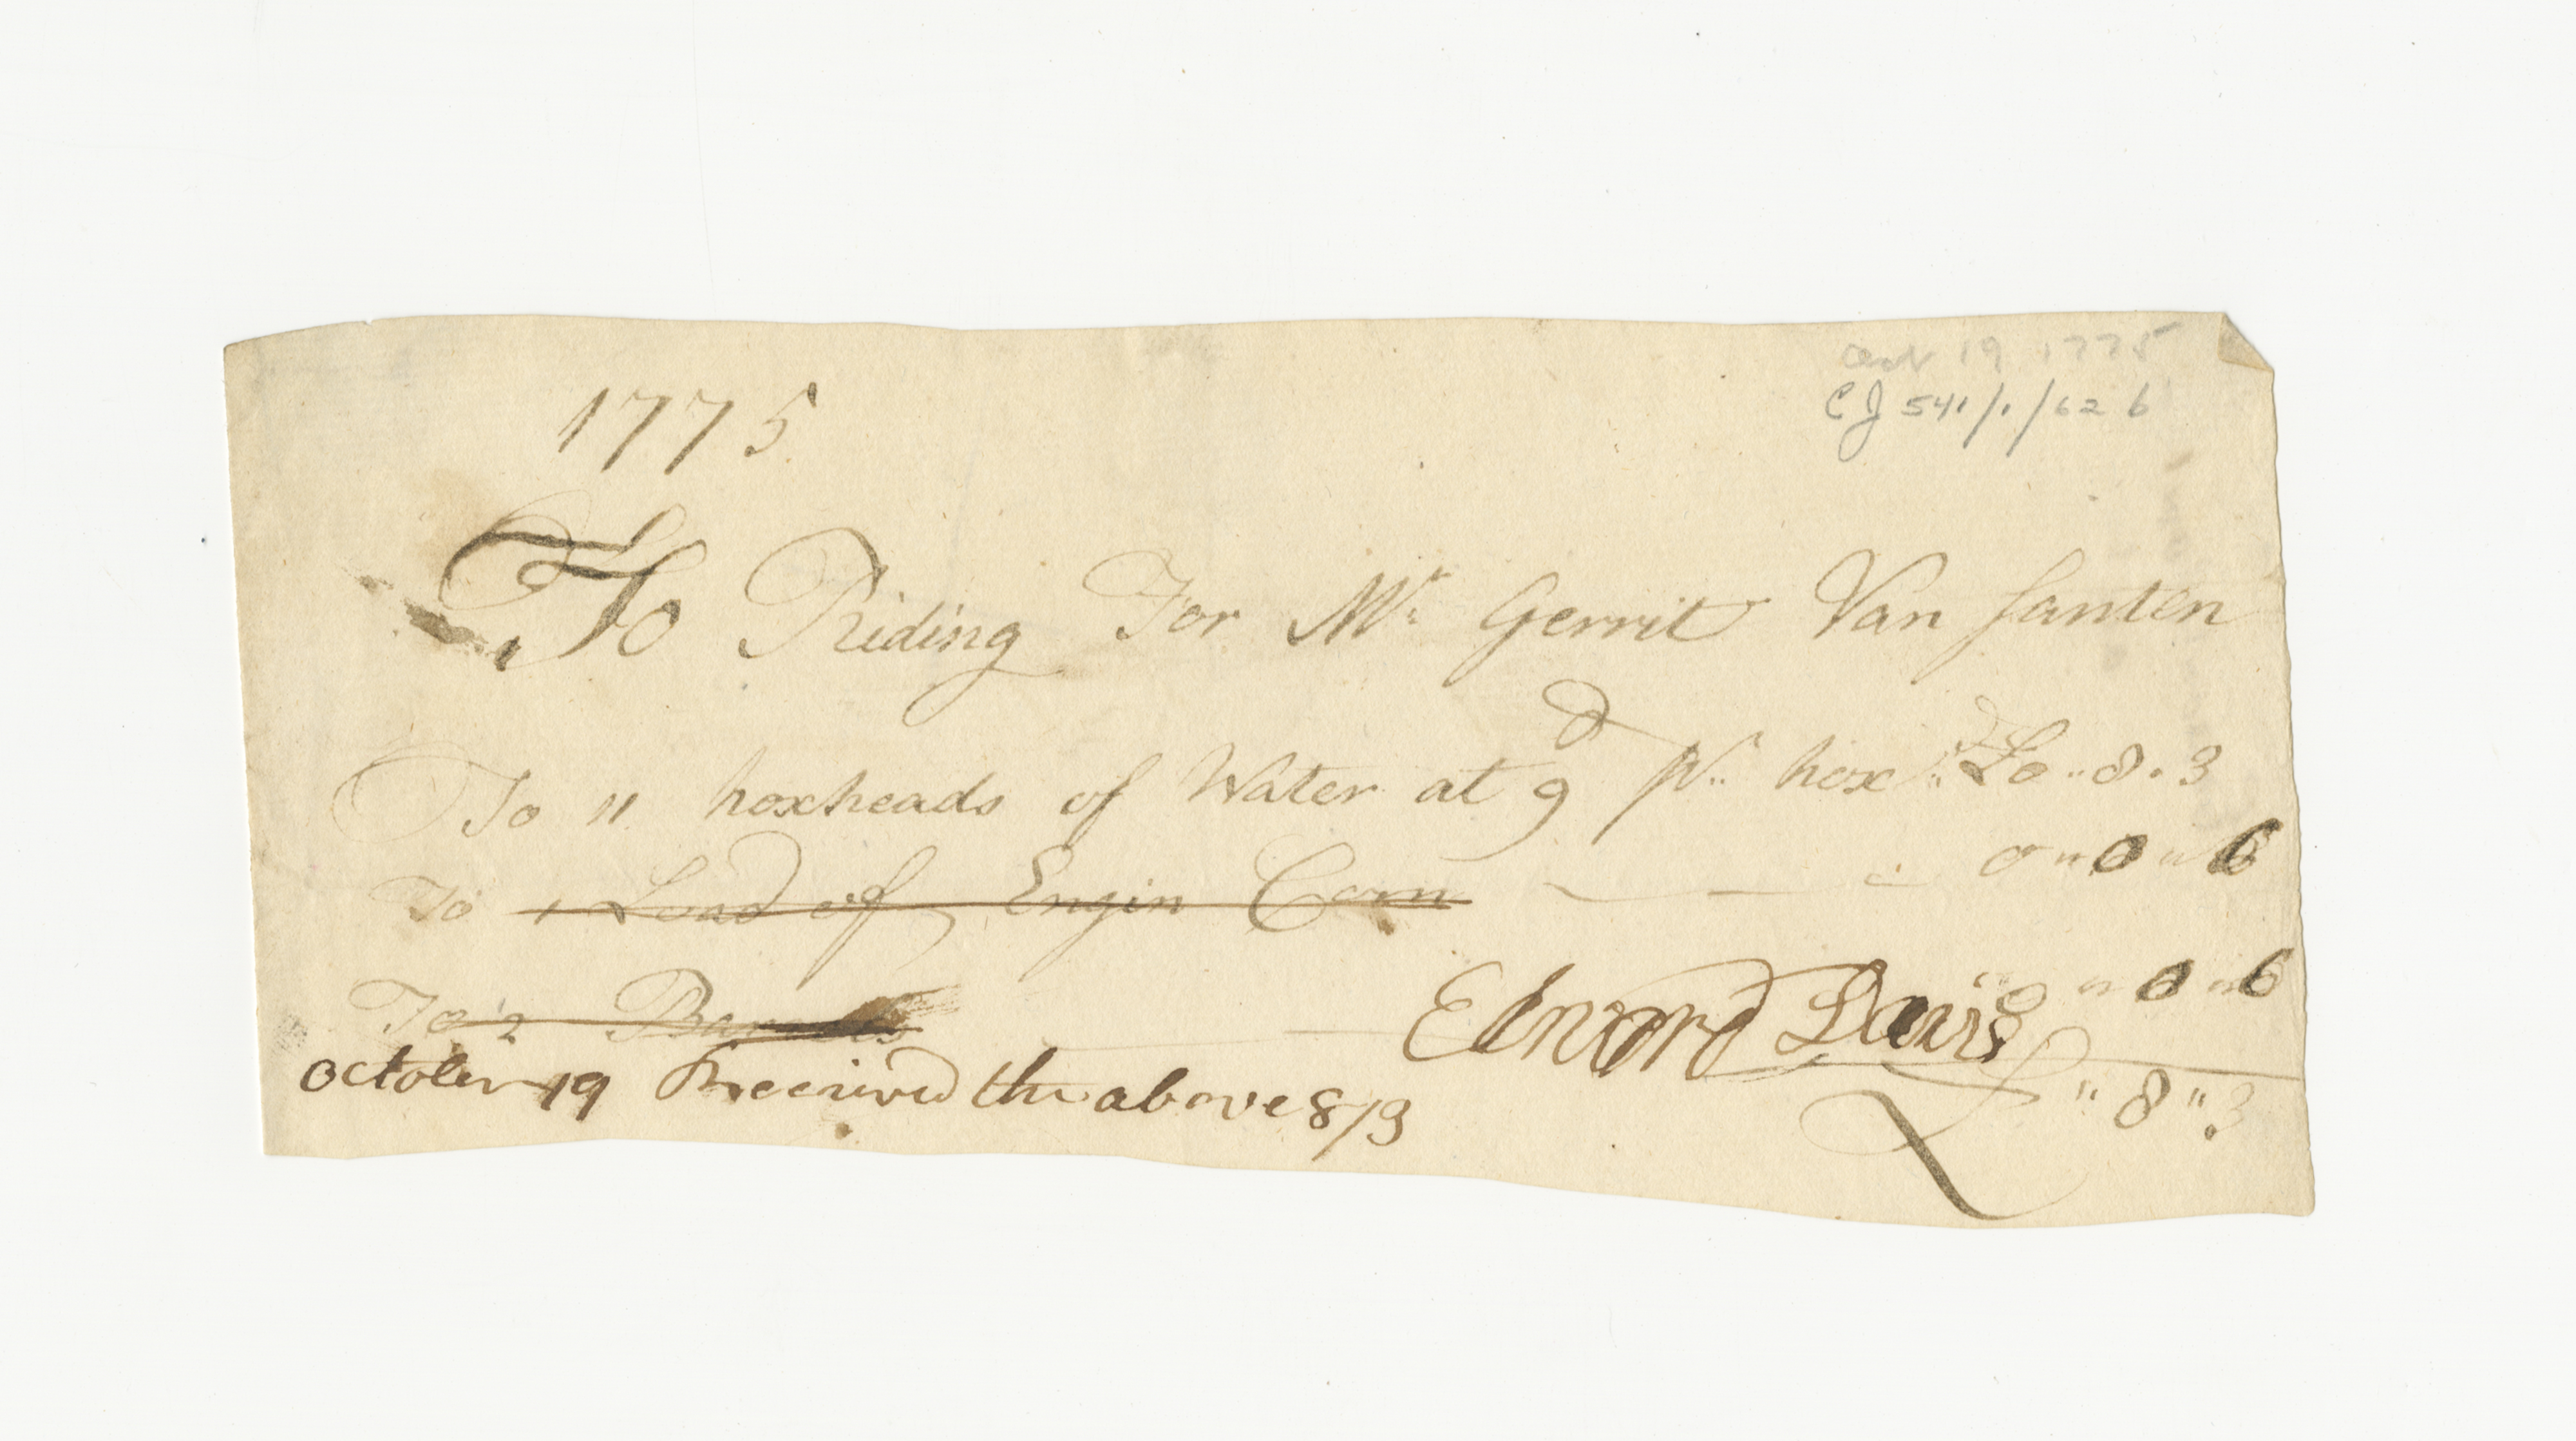 Oct 19 1775
CJ 541/1/62 b
1775
To Riding For Mr Gerrit Van Santen
To 11 hoxheads of Water at 9d pr hoxd £0..8.3
To 1 Load of Engin Corn 0"0"6
To 2 Barrels 0"0"6
Edward Davis
October 19 Received the above 8/3
£"8"3